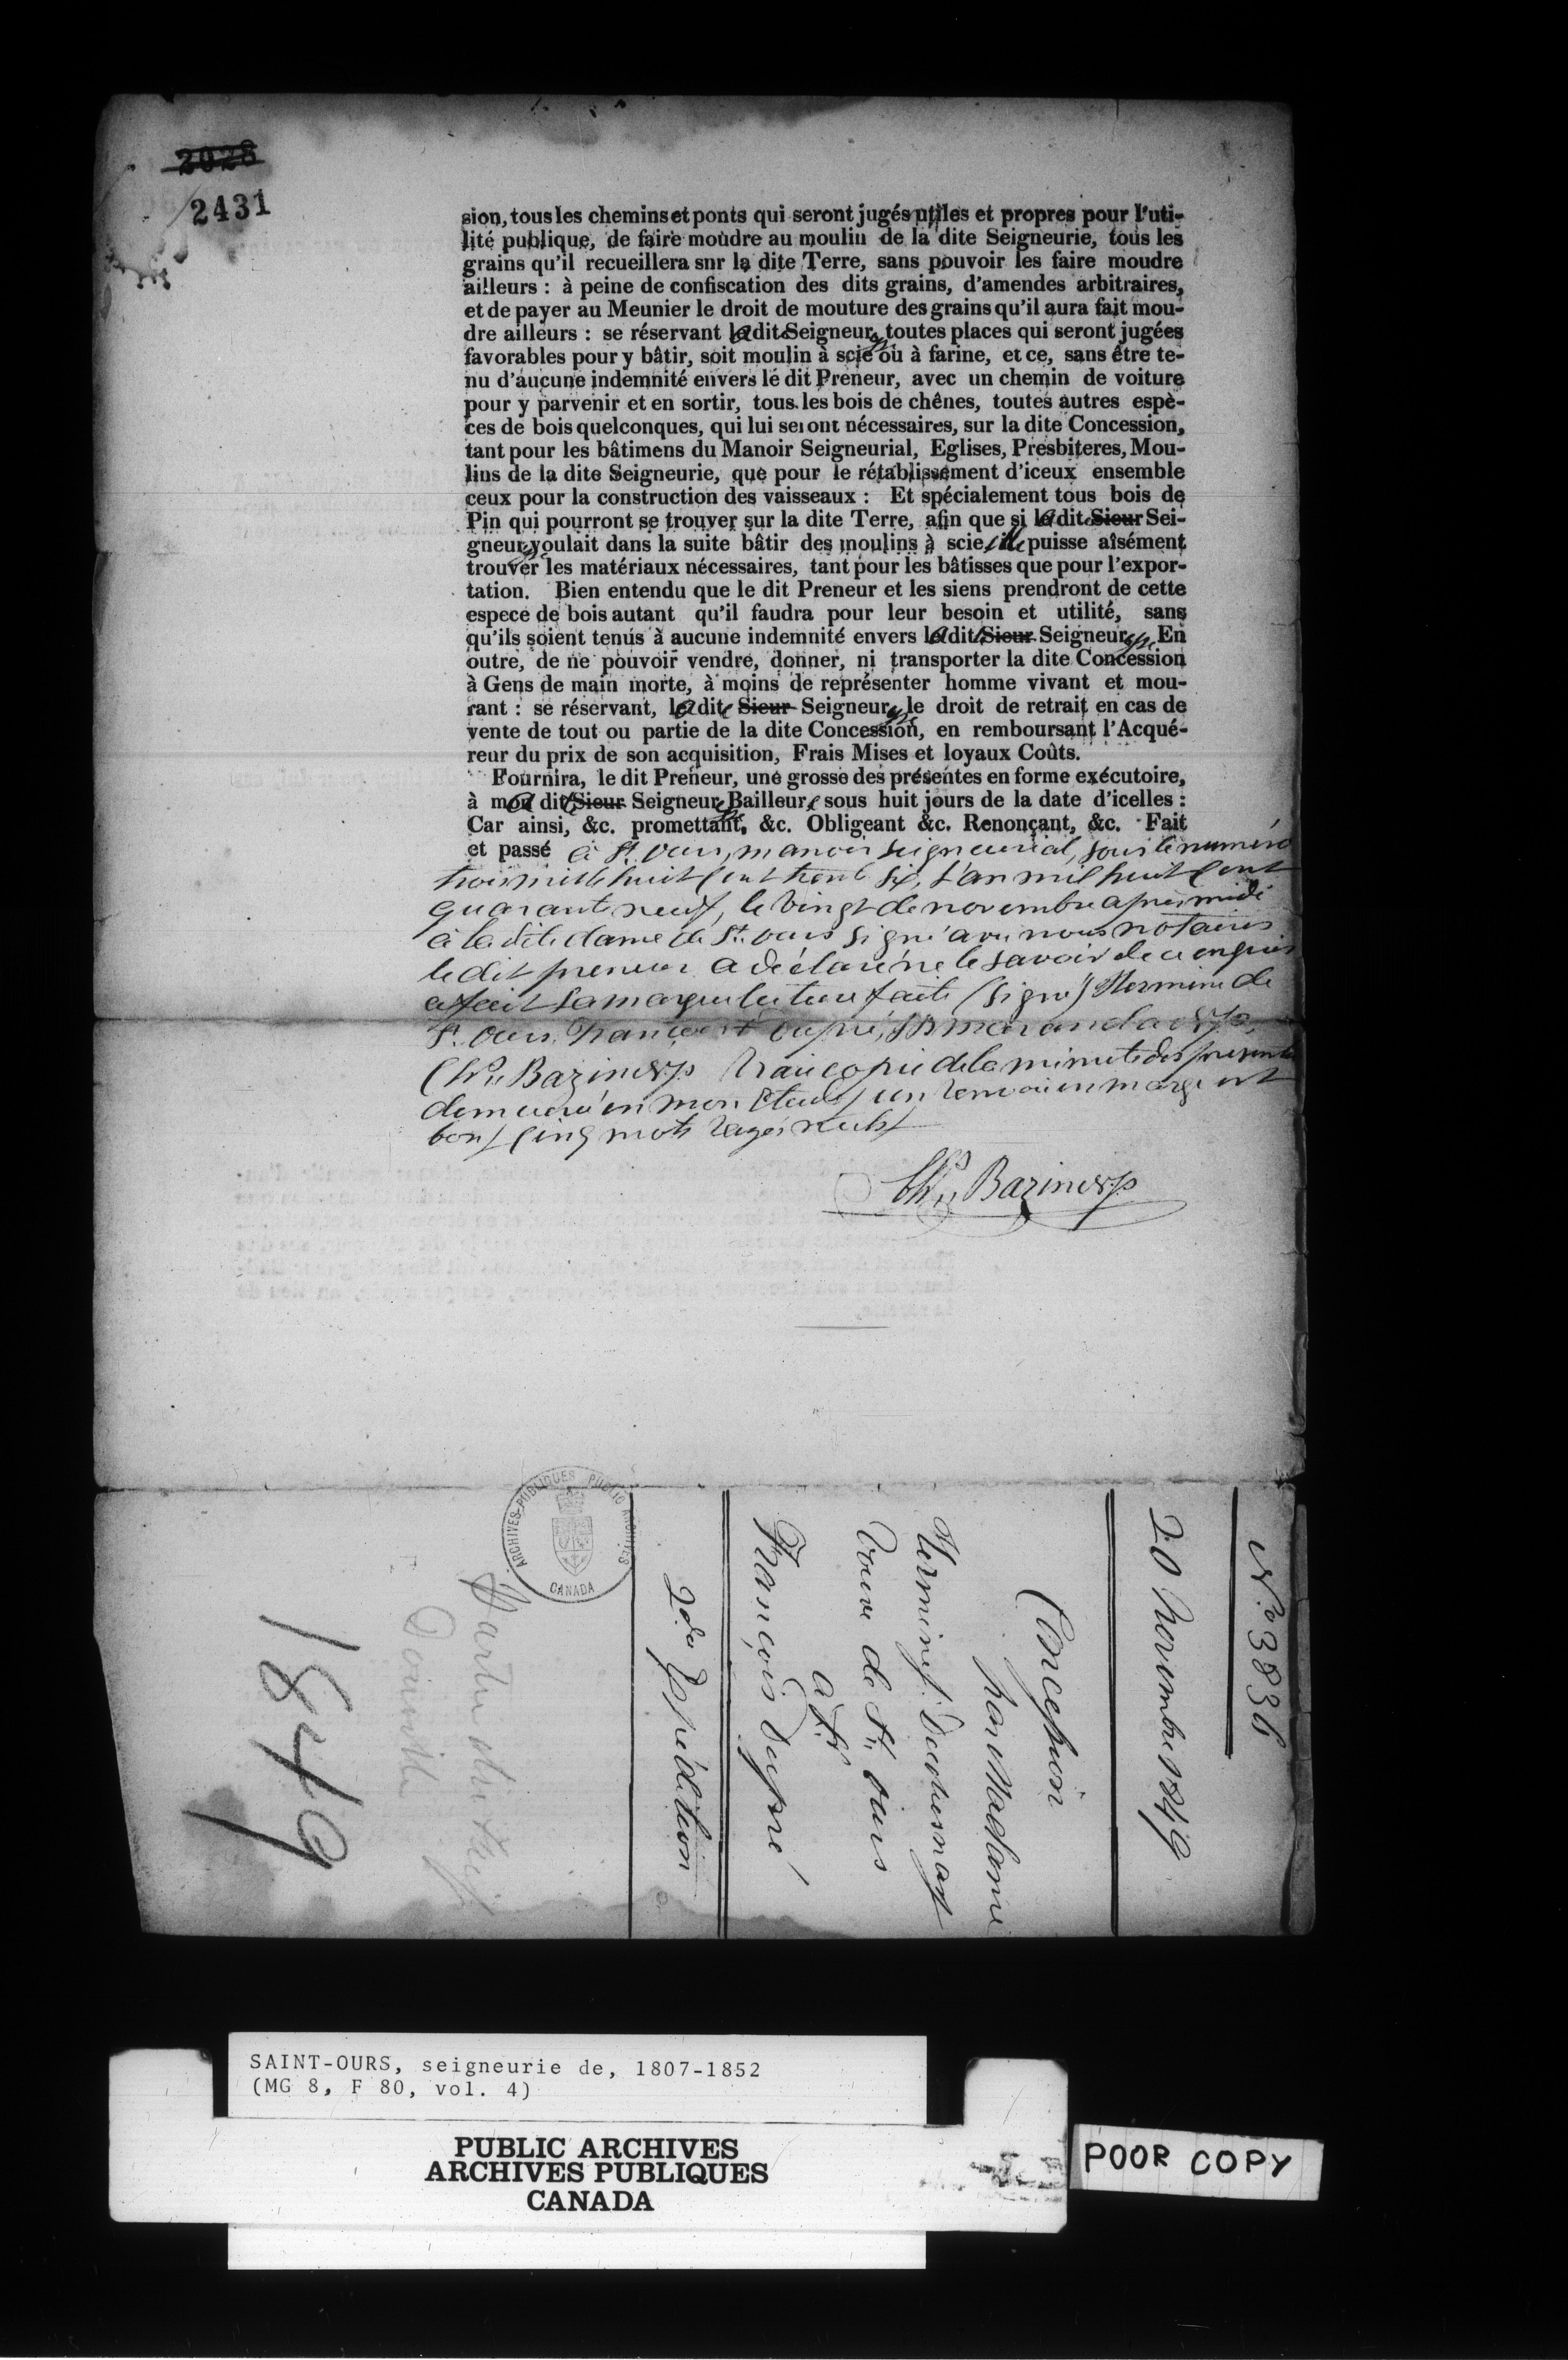 2028
2431
sion, tous les chemins et ponts qui seront jugés utiles et propres pour l'uti-
lité publique, de faire moudre au moulin de la dite Seigneurie, tous les
grains qu'il recueillera snr la dite Terre, sans pouvoir les faire moudre
ailleurs : à peine de confiscation des dits grains, d'amendes arbitraires,
et de payer au Meunier le droit de mouture des grains qu'il aura fait mou-
dre ailleurs : se réservant la dite Seigneuresse toutes places qui seront jugées
favorables pour y bâtir, soit moulin à scie ou à farine, et ce, sans être te-
nu d'aucune indemnité envers le dit Preneur, avec un chemin de voiture
pour y parvenir et en sortir, tous les bois de chênes, toutes autres espè-
ces de bois quelconques, qui lui seront nécessaires, sur la dite Concession,
tant pour les bâtimens du Manoir Seigneurial, Eglises, Presbiteres, Mou-
lins de la dite Seigneurie, que pour le rétablissement d'iceux ensemble
ceux pour la construction des vaisseaux : Et spécialement tous bois de
Pin qui pourront se trouver sur la dite Terre, afin que si la dite Sieur Sei-
gneuresse voulait dans la suite bâtir des moulins à scie elle puisse aîsément
trouver les matériaux nécessaires, tant pour les bâtisses que pour l'expor-
tation. Bien entendu que le dit Preneur et les siens prendront de cette
espece de bois autant qu'il faudra pour leur besoin et utilité, sans
qu'ils soient tenus à aucune indemnité envers la dite Sieur Seigneuresse. En
outre, de ne pouvoir vendre, donner, ni transporter la dite Concession
à Gens de main morte, à moins de représenter homme vivant et mou-
rant : se réservant, la dite Sieur Seigneuresse le droit de retrait en cas de
vente de tout ou partie de la dite Concession, en remboursant l'Acqué-
reur du prix de son acquisition, Frais Mises et loyaux Coûts.
Fournira, le dit Preneur, une grosse des présentes en forme exécutoire,
à ma dite Sieur Seigneuresse Bailleure sous huit jours de la date d'icelles :
Car ainsi, &c. promettant, &c. Obligeant &c. Renonçant, &c. Fait
et passé à St. Ours, manoir seigneurial, sous le numéro
trois mille huit cent trente six, l'an mil huit cent
quarante neuf, le vingt de novembre après midi
à la dite dame de St. Ours signé avec nous notaires
le dit preneur a déclaré ne le savoir de ce enquis
a fait sa marque lecture faite (signé) Hermine de
St. Ours, François + Dupré,
Chs. Bazin N.P. Vraie copie de la minute des présentes
demeurée en mon Etude, un renvoi en marge est
bon, cinq mots rayés nuls
Chs. Bazin N.P.
No 3836
20 Novembre 1849
Concession
par Madame
Hermine
Veuve de St. Ours
à
François Dupré
2de Expédition
1849
ARCHIVES PUBLIQUES PUBLIC ARCHIVES
CANADA
SAINT-OURS, seigneurie de, 1807-1852
(MG 8, F 80, vol. 4)
PUBLIC ARCHIVES
ARCHIVES PUBLIQUES
CANADA
POOR COPY